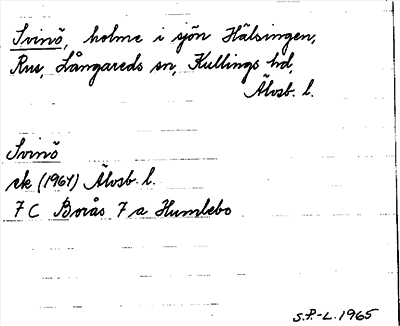 Svinö, holme i sjön Hälsingen,
Rus, Långareds sn, Kullings hd,
Älvsb. l.
Svinö
ek (1964) Älvsb. l.
7 C Borås 7 a Humlebo
S.P.-L. 1965